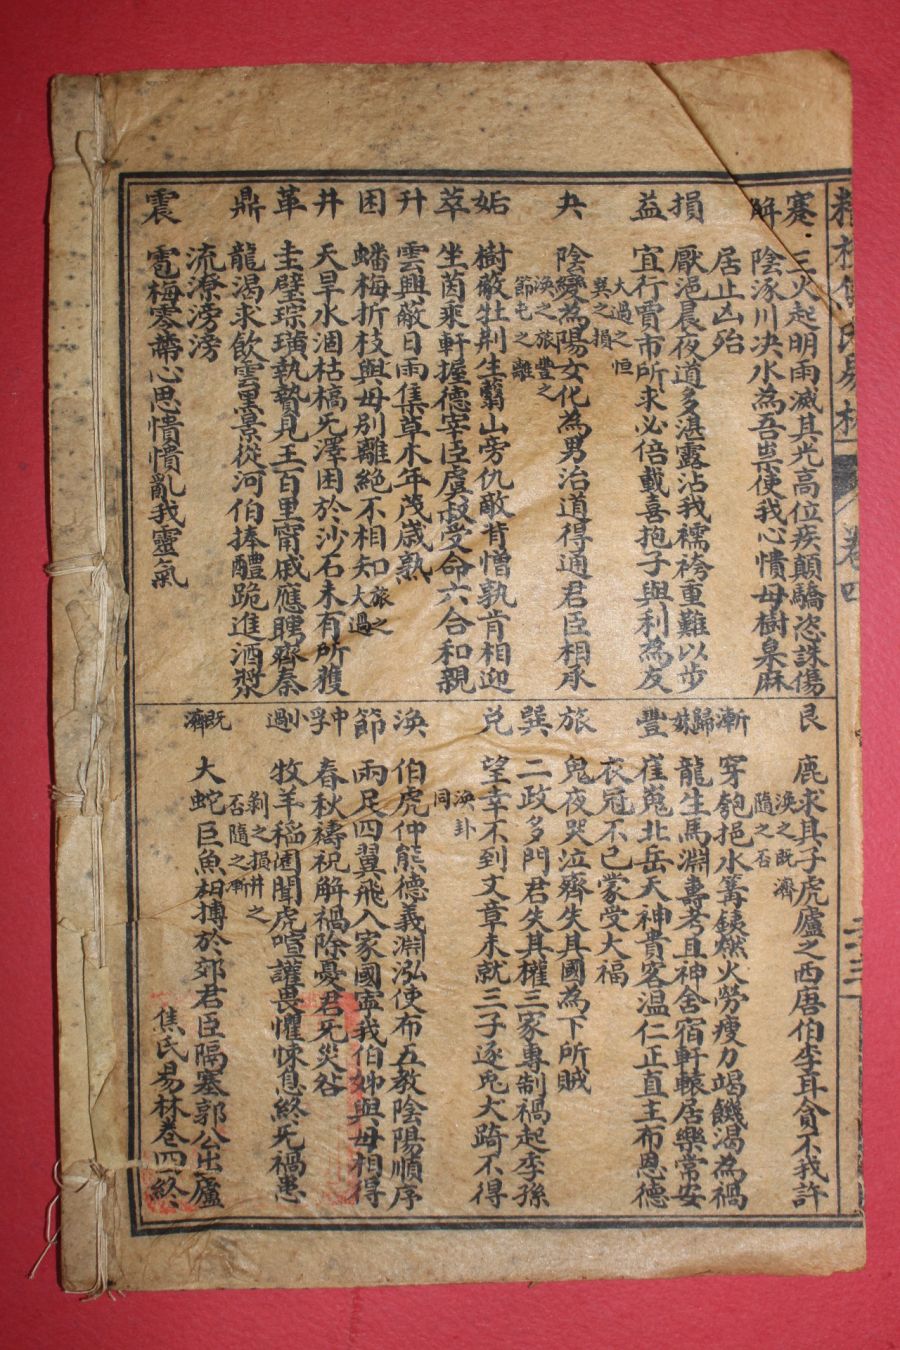 精校焦氏易林 卷四
蹇 三火起明雨滅其光高位疾顛驕恣誅傷
解 陰涿川决水為吾祟使我心憒毋樹桌麻
居止凶殆
損 厭浥晨夜道多湛露沾我襦袴重難以步
益 宜行賣市所求必倍載喜抱子與利為友
大過之恒
巽之損
夬 陰變為陽女化為男治道得通君臣相承
渙之旅豐之
節屯之離
姤 樹蔽牡荆生藟山旁仇敵肯憎孰肯相迎
萃 坐茵乘軒握德宰臣虞叔受命六合和親
升 雲興蔽日雨集草木年茂歲熟
困 蟠梅折枝與母別離絕不相知
旅之
大過
井 天旱水涸枯槁无澤困於沙石未有所獲
革 圭璧琮璜執贄見王百里甯戚應聘齊秦
鼎 龍渴求飲雲黑景從河伯捧醴跪進酒漿
流潦滂滂
震 雹梅零蔕心思憒憒亂我靈氣
艮 鹿求其子虎廬之西唐伯李耳貪不我許
渙之既濟
隨之否
漸 穿匏挹水篝鐵燃火勞瘦力竭饑渴為禍
歸妹 龍生馬淵壽考且神舍宿軒轅居樂常安
豐 崔嵬北岳天神貴客温仁正直主布恩德
衣冠不已蒙受大福
旅 鬼夜哭泣齊失其國為下所賊
巽 二政多門君失其權三家專制禍起季孫
兌 望幸不到文章未就三子逐兎大踦不得
渙卦
同
渙 伯虎仲熊德義淵泓使布五教陰陽順序
節 兩足四翼飛入家國寧我伯姊與母相得
中孚 春秋禱祝解禍除憂君无災咎
小過 牧羊稻園聞虎喧讙畏懼悚息終无禍患
剝之損井之
否隨之漸
既濟 大蛇巨魚相搏於郊君臣隔塞郭公出廬
焦氏易林卷四終